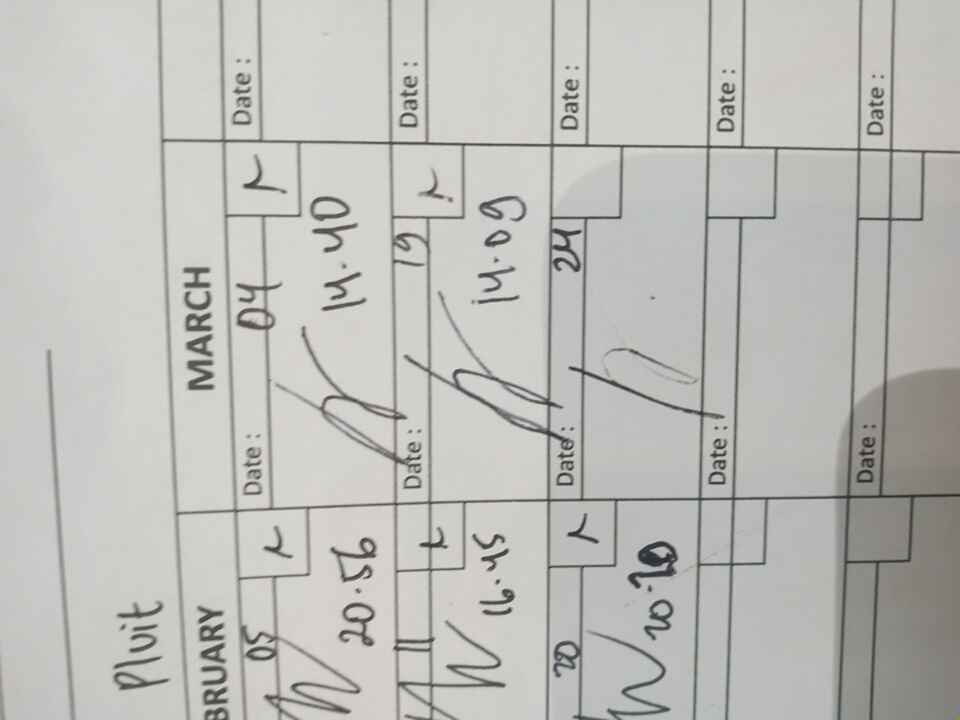 Pluit
BRUARY
MARCH
05
r
20.56
Date : 04
r
14.40
Date :
11
r
16.45
Date : 19
r
14.09
Date :
20
r
Date : 24
Date :
Date :
Date :
Date :
Date :